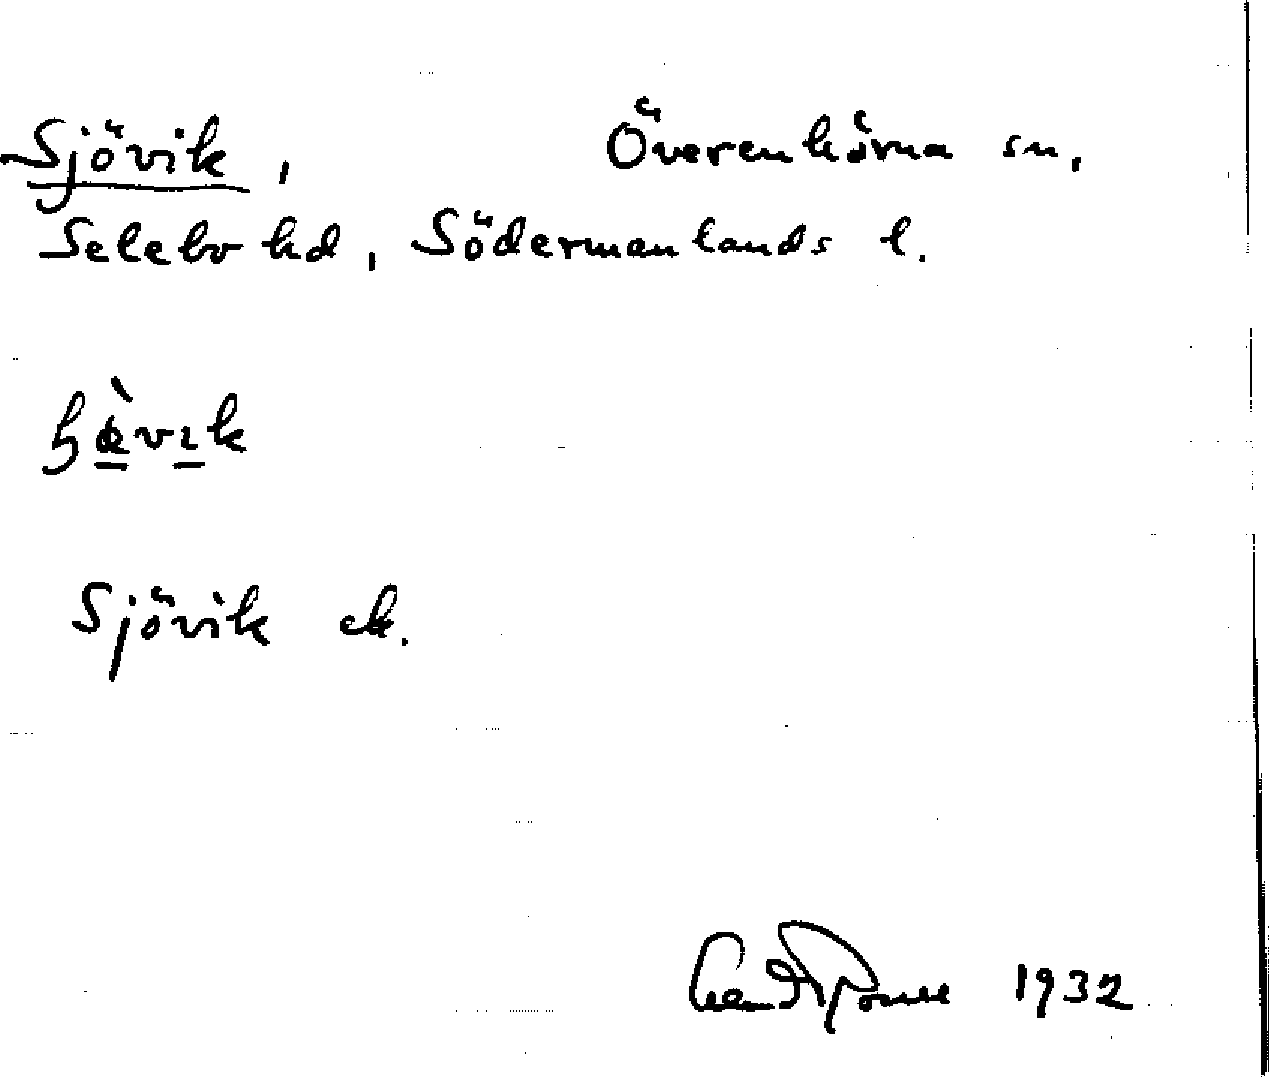 Sjövik, Överenhörna sn,
Selebo hd, Södermanlands l.
Sjövik ek.
1932